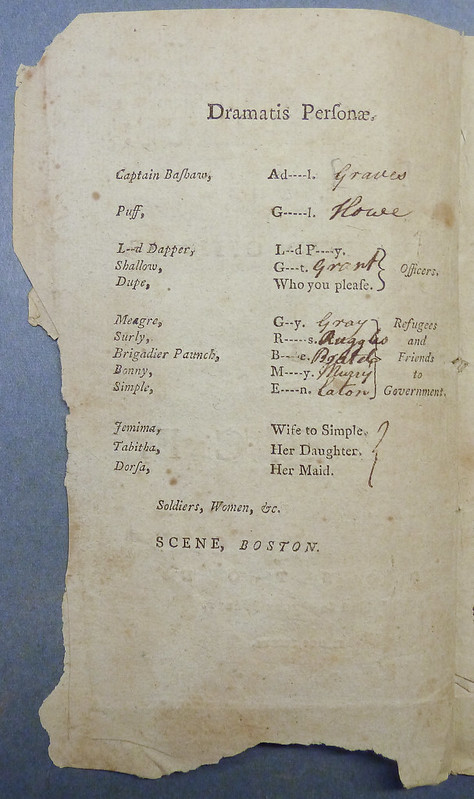 Dramatis Perſonæ.
Captain Baſhaw, Ad----l. Graves
Puff, G-----l. Howe
L--d Dapper, L--d P----y.
Shallow, G---t. Grant Officers.
Dupe, Who you pleaſe.
Meagre, G--y. Gray Refugees
Surly, R-----s. Ruggles and
Brigadier Paunch, B---e. Friends
Bonny, M----y. Murry to
Simple, E----n. Eaton Government.
Jemima, Wife to Simple.
Tabitha, Her Daughter.
Dorſa, Her Maid.
Soldiers, Women, &c.
SCENE, BOSTON.